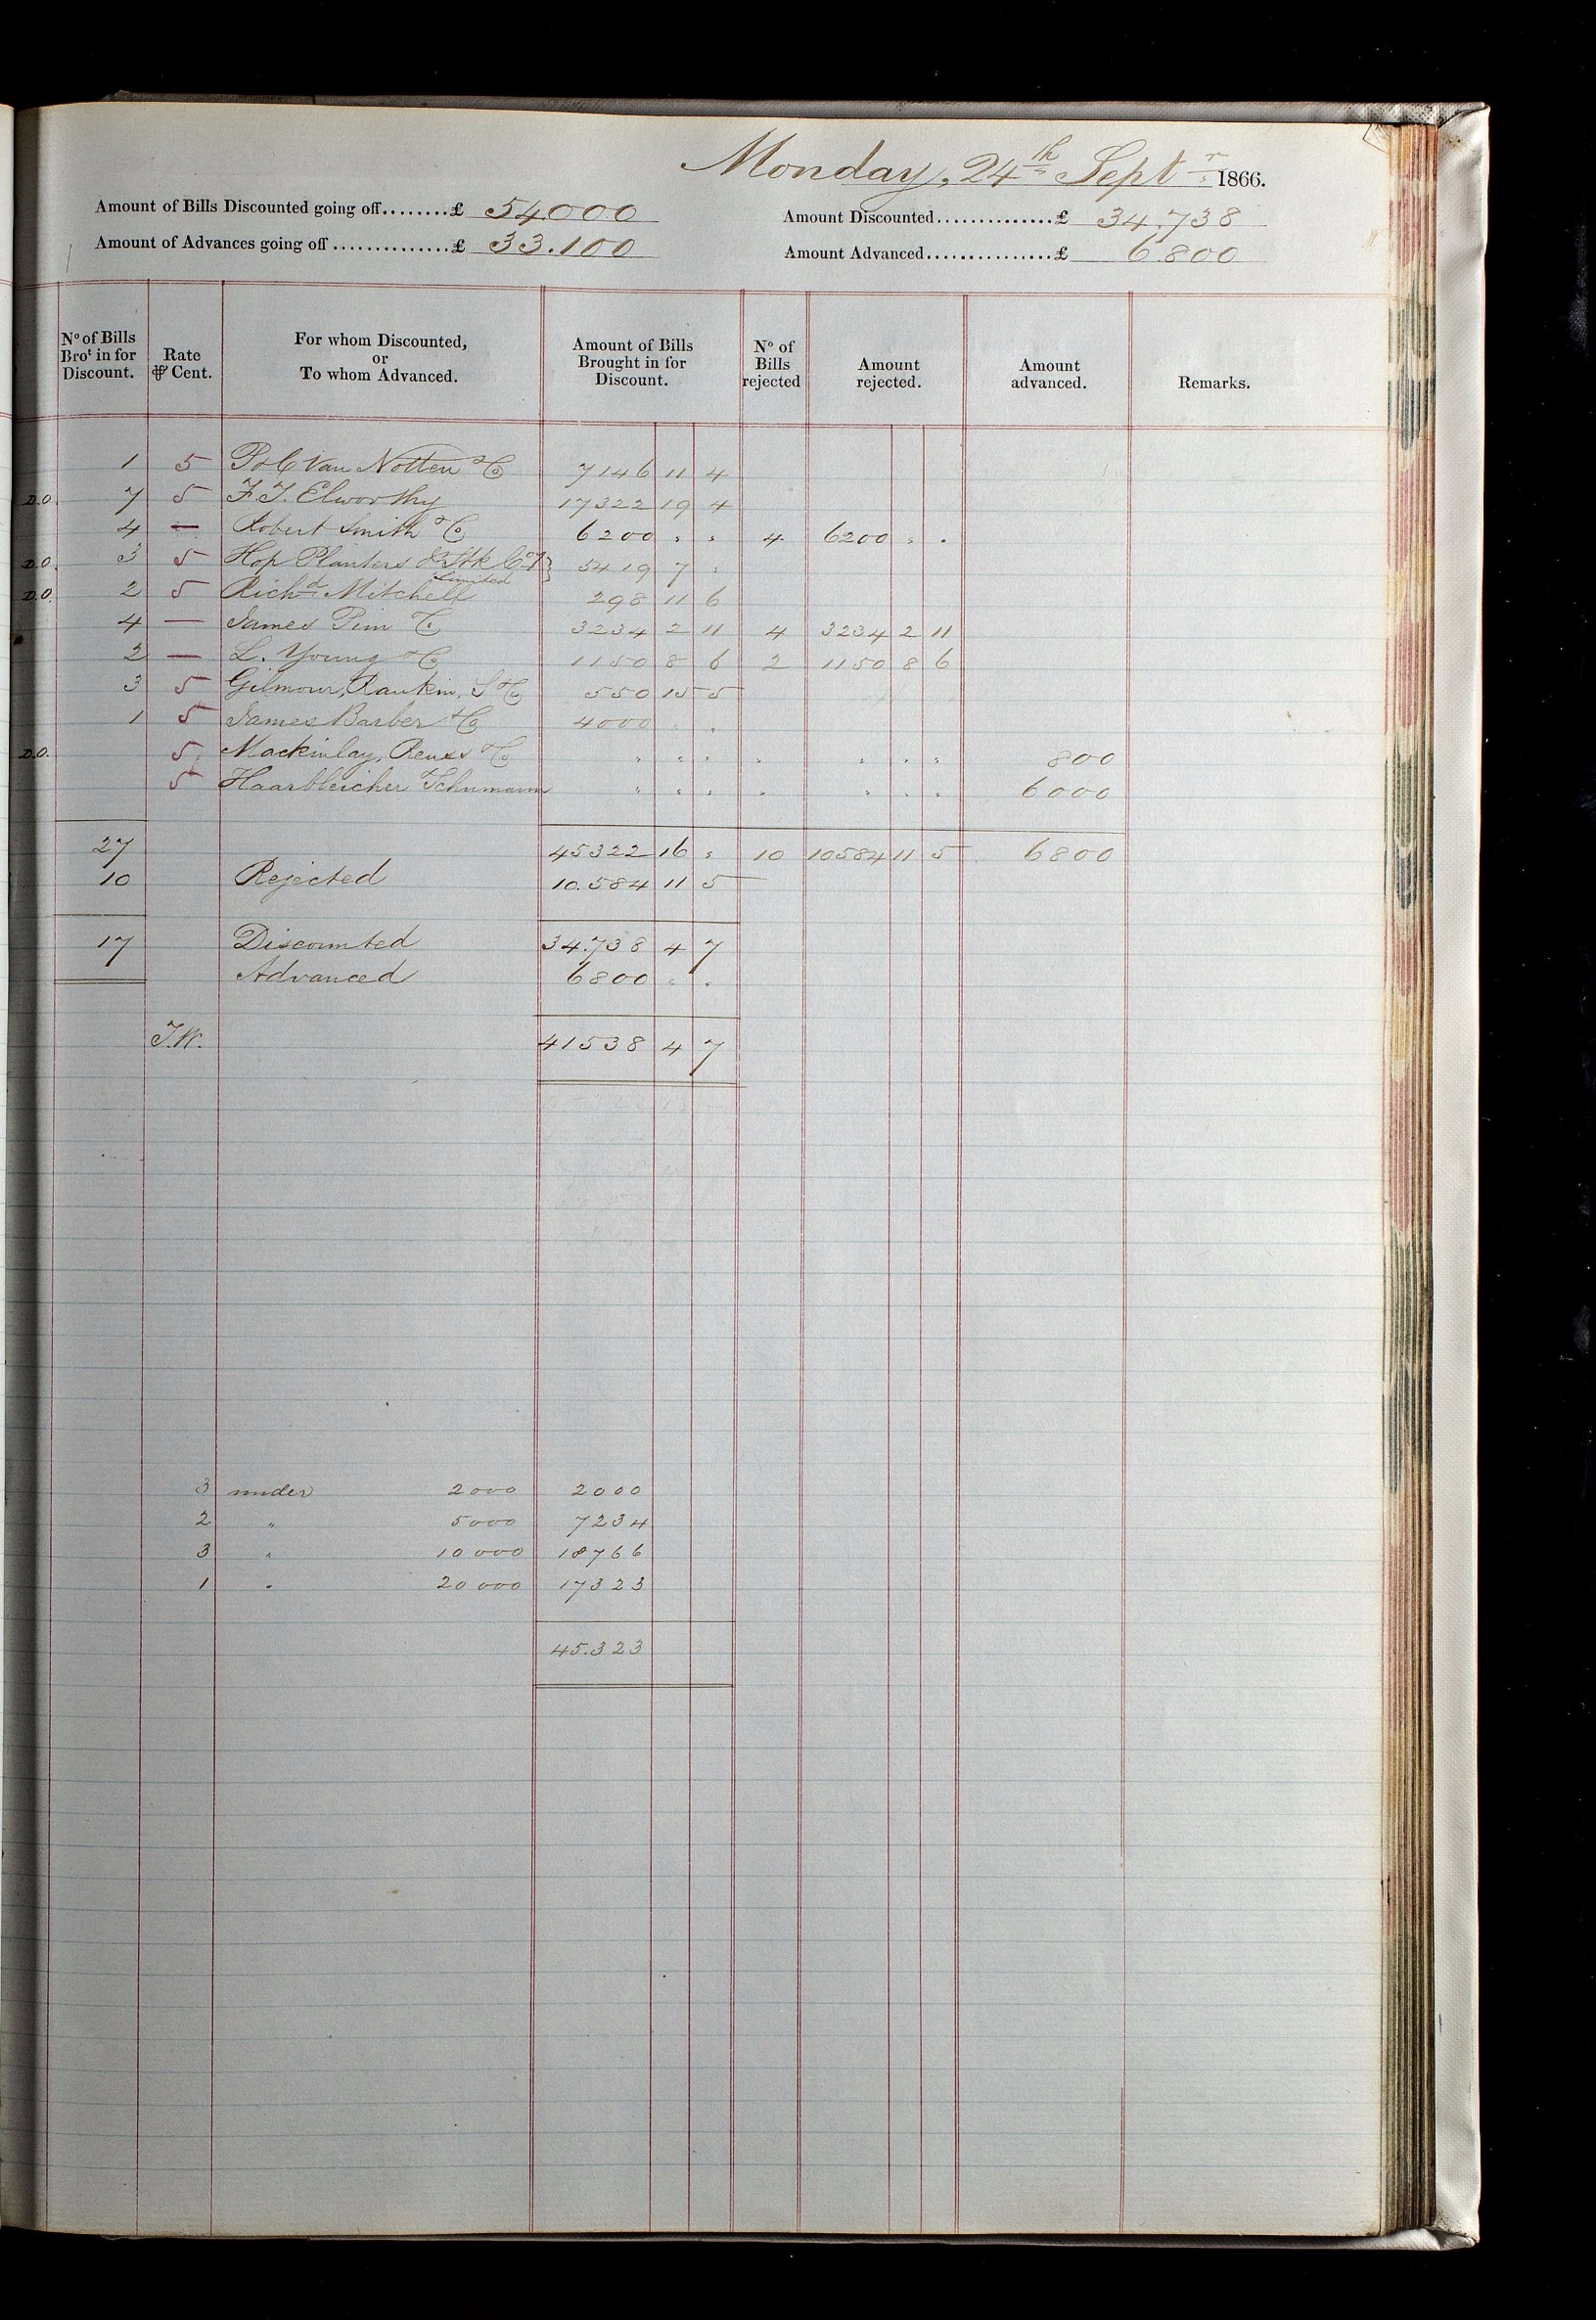 Monday, 24th Septr 1866.
Amount of Bills Discounted going off........£ 54000 Amount Discounted..............£ 34.738
Amount of Advances going off..............£ 33.100 Amount Advanced...............£ 6.800
No of Bills Brot in for Discount. Rate ⅌ Cent. For whom Discounted, or To whom Advanced. Amount of Bills Brought in for Discount. No of Bills rejected Amount rejected. Amount advanced. Remarks.
1 5 P & C Van Notten & Co 7146 11 4
D.O. 7 5 F. T. Elworthy 17322 19 4
4 — Robert Smith & Co 6200 " " 4 6200 " "
D.O. 3 5 Hop Planters & Stk Coy Limited } 5419 7 "
D.O. 2 5 Richd Mitchell 298 11 6
4 — James Pim & Co 3234 2 11 4 3234 2 11
2 — L. Young & Co 1150 8 6 2 1150 8 6
3 5 Gilmour, Rankin, S & Co 550 15 5
1 5 James Barber & Co 4000 " "
D.O. 5 Mackinlay, Reuss & Co " " " " " " " 800
5 Haarbleicher Schumann " " " " " " " 6000
27 45322 16 " 10 10584 11 5 6800
10 Rejected 10.584 11 5
17 Discounted 34.738 4 7
Advanced 6800 " "
T.W. 41538 4 7
3 under 2000 2000
2 " 5000 7234
3 " 10000 18766
1 " 20000 17323
45.323